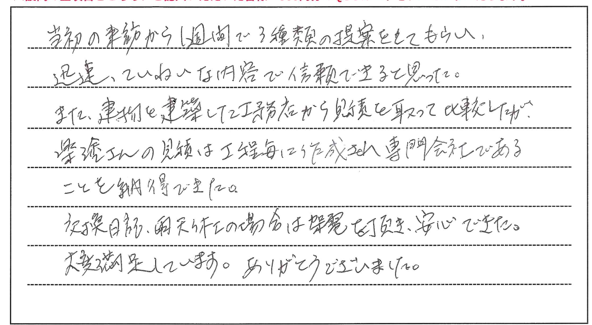 当初の来訪から1週間で3種類の提案をしてもらい、
迅速、ていねいな内容で信頼できると思った。
また、建物を建築した工務店から見積を取って比較したが、
さんの見積は工程毎に作成され専門会社である
ことを納得できた。
交換日記、雨天休工の場合は架電を頂き、安心できた。
大変満足しています。ありがとうございました。